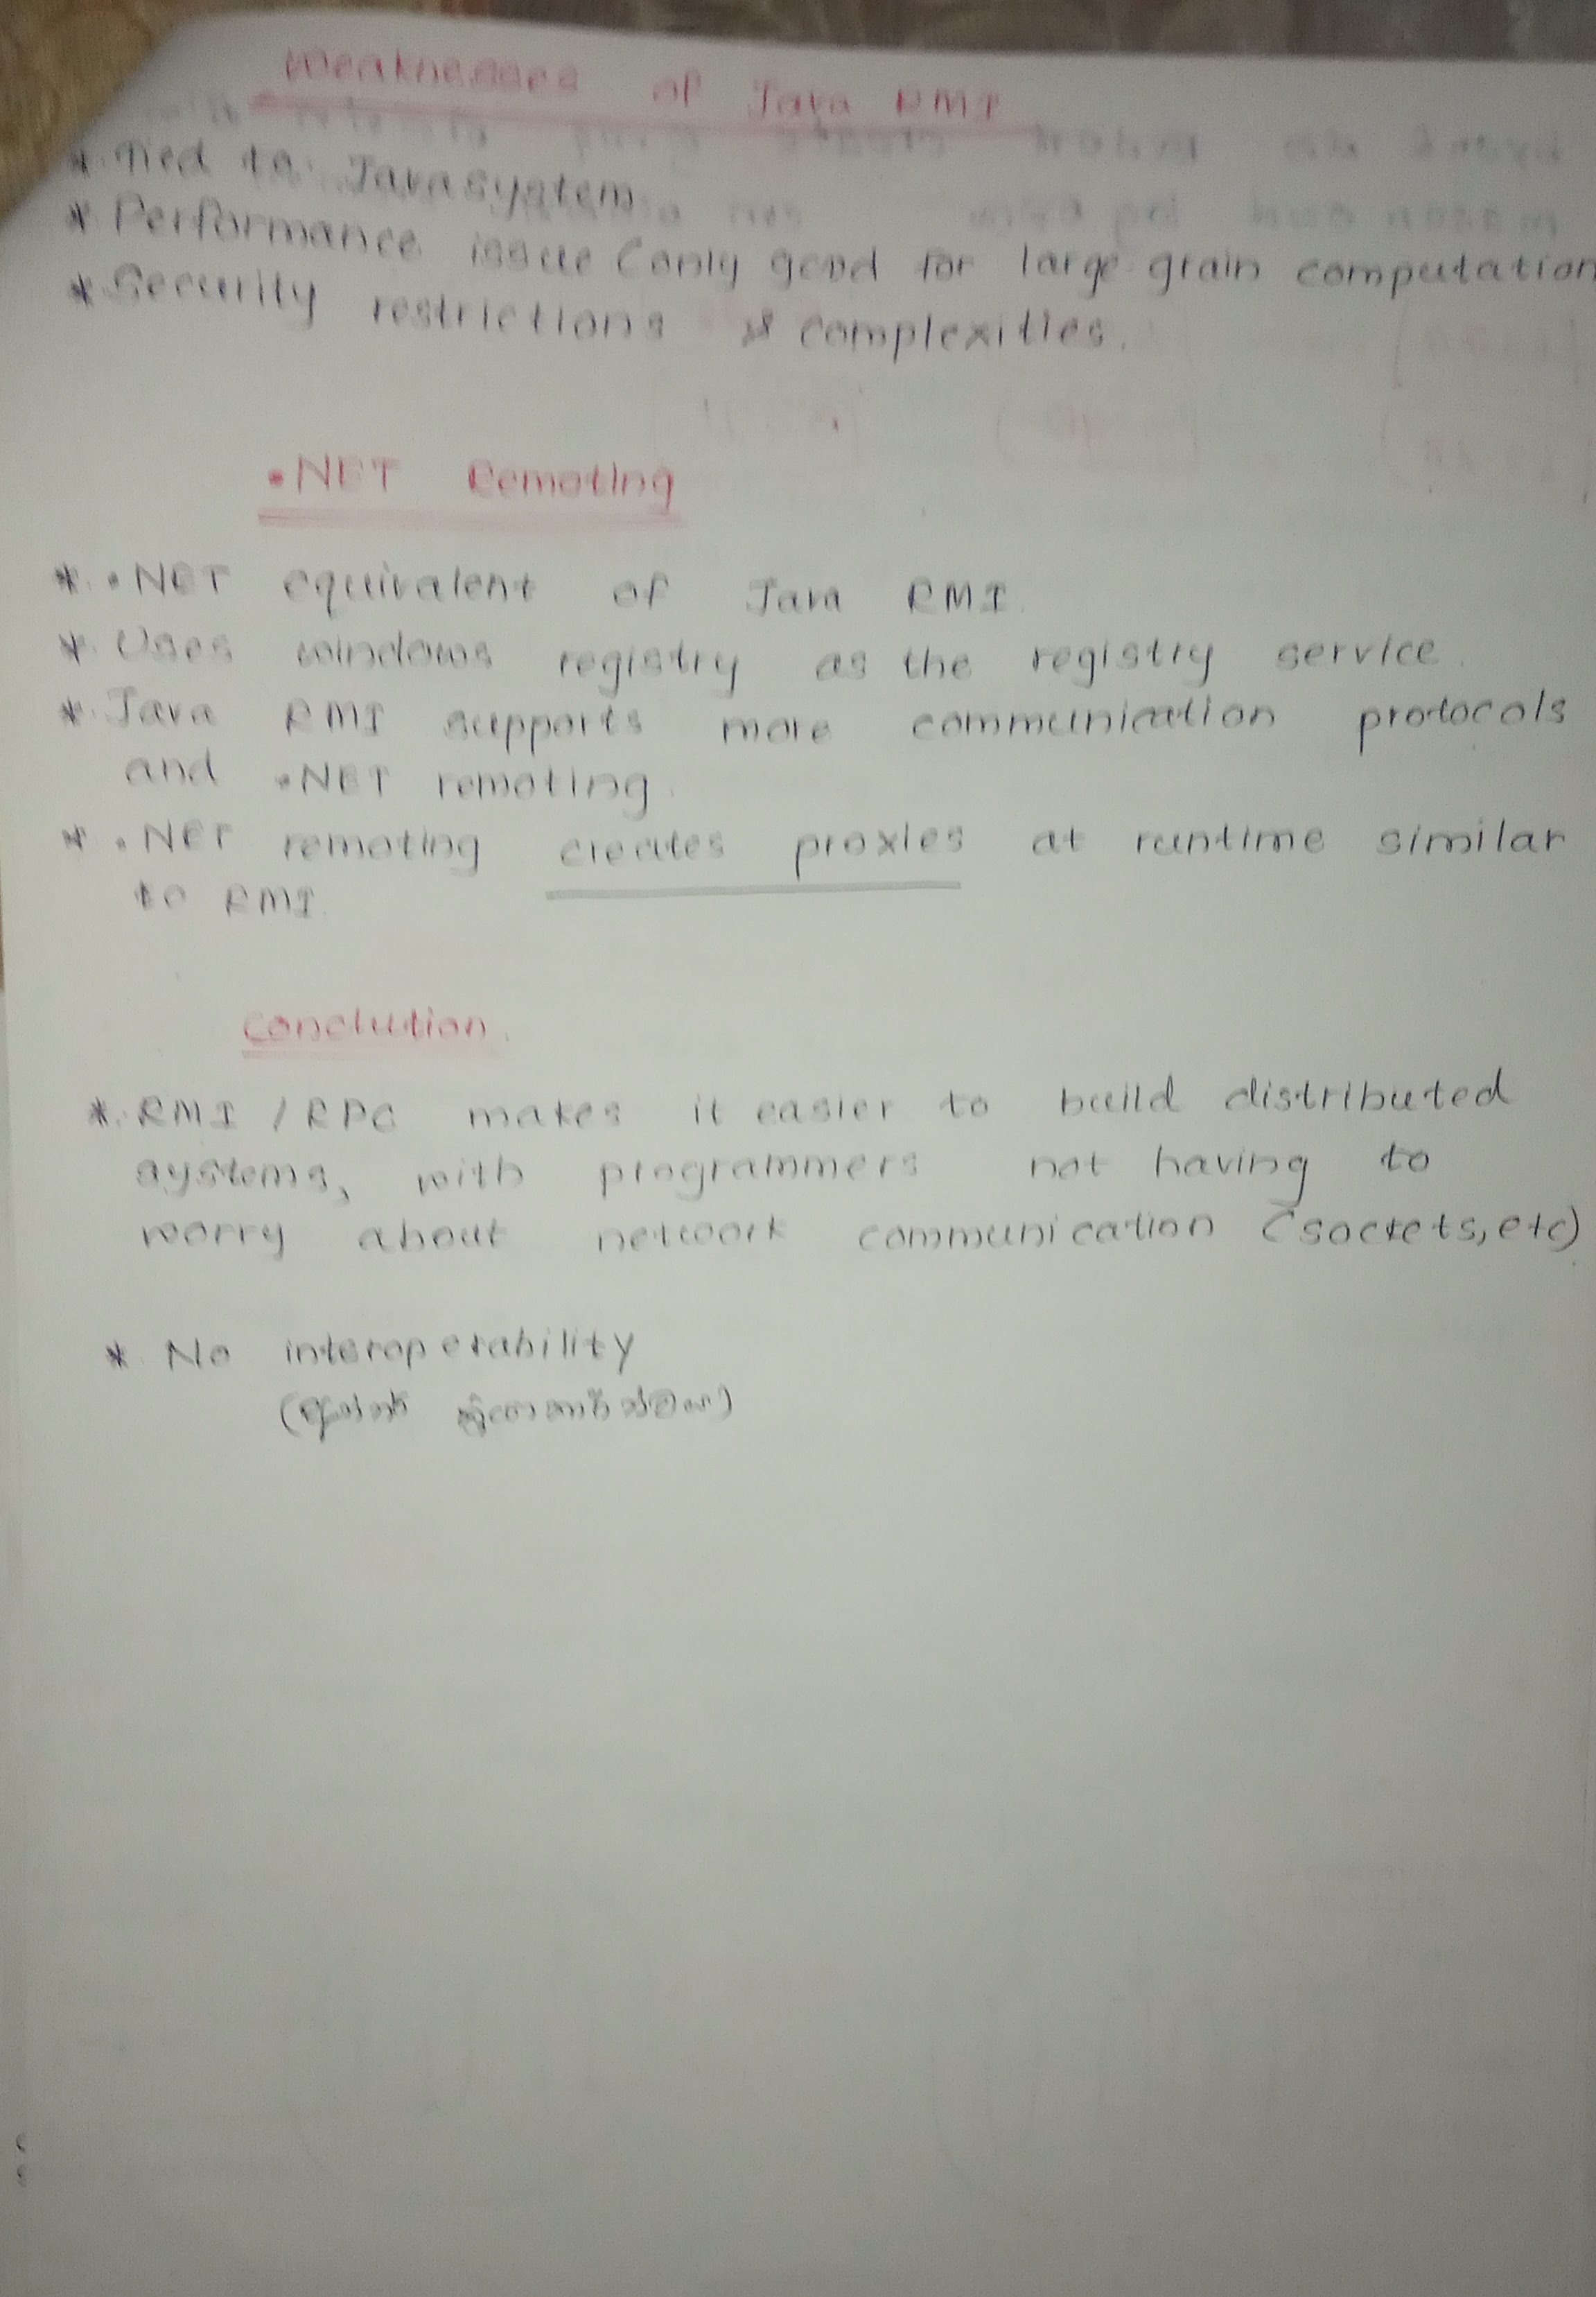 Weaknesses of Java RMI
* Tied to Java system
* Performance issue (only good for large grain computation
* Security restrictions & complexities.
.NET Remoting
* .NET equivalent of Java RMI.
* Uses windows registry as the registry service.
* Java RMI supports more communication protocols
and .NET remoting.
* .NET remoting creates proxies at runtime similar
to RMI.
Conclution.
* RMI / RPC makes it easier to build distributed
systems, with programmers not having to
worry about network communication (sockets, etc)
* No interoperability